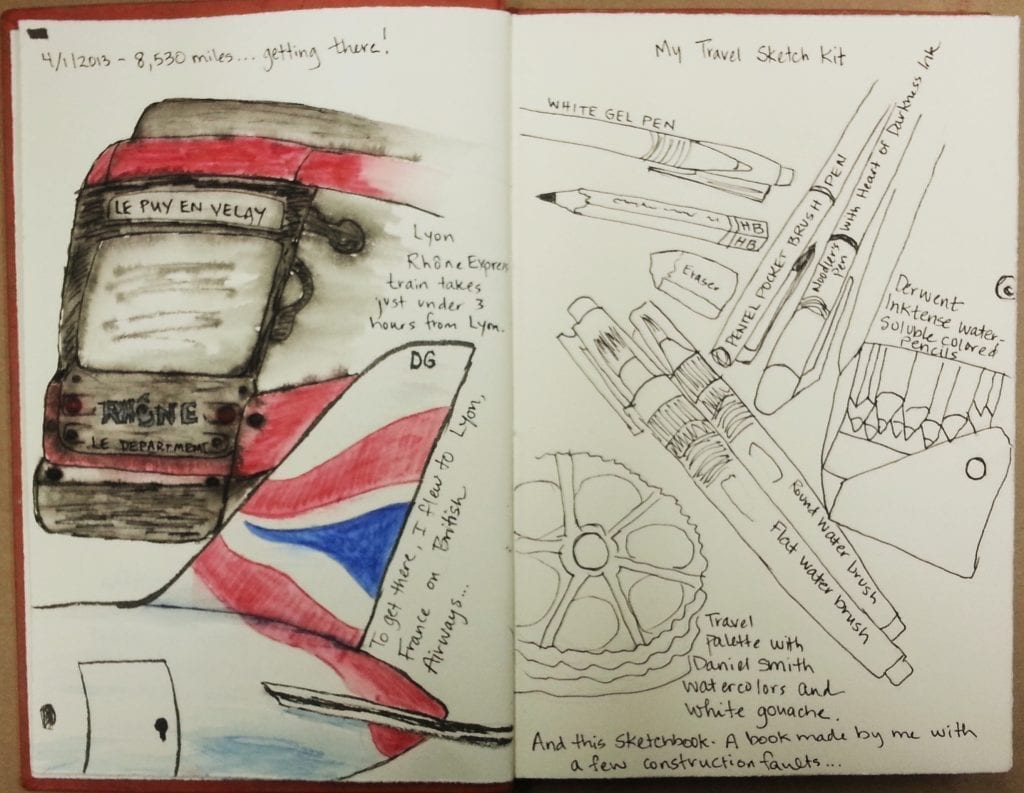 4/1/2013 - 8,530 miles... getting there!
LE PUY EN VELAY
Lyon
Rhône Express
train takes
just under 3
hours from Lyon.
RHÔNE
LE DEPARTMENT
DG
To get there, I flew to Lyon,
France on British
Airways...
My Travel Sketch Kit
WHITE GEL PEN
HB
HB
Eraser
PENTEL POCKET BRUSH PEN
Noodler's Pen with Heart of Darkness Ink
Derwent
Inktense water-
soluble colored
pencils
Round water brush
Flat water brush
Travel
palette with
Daniel Smith
watercolors and
white gouache.
And this sketchbook. A book made by me with
a few construction faults...